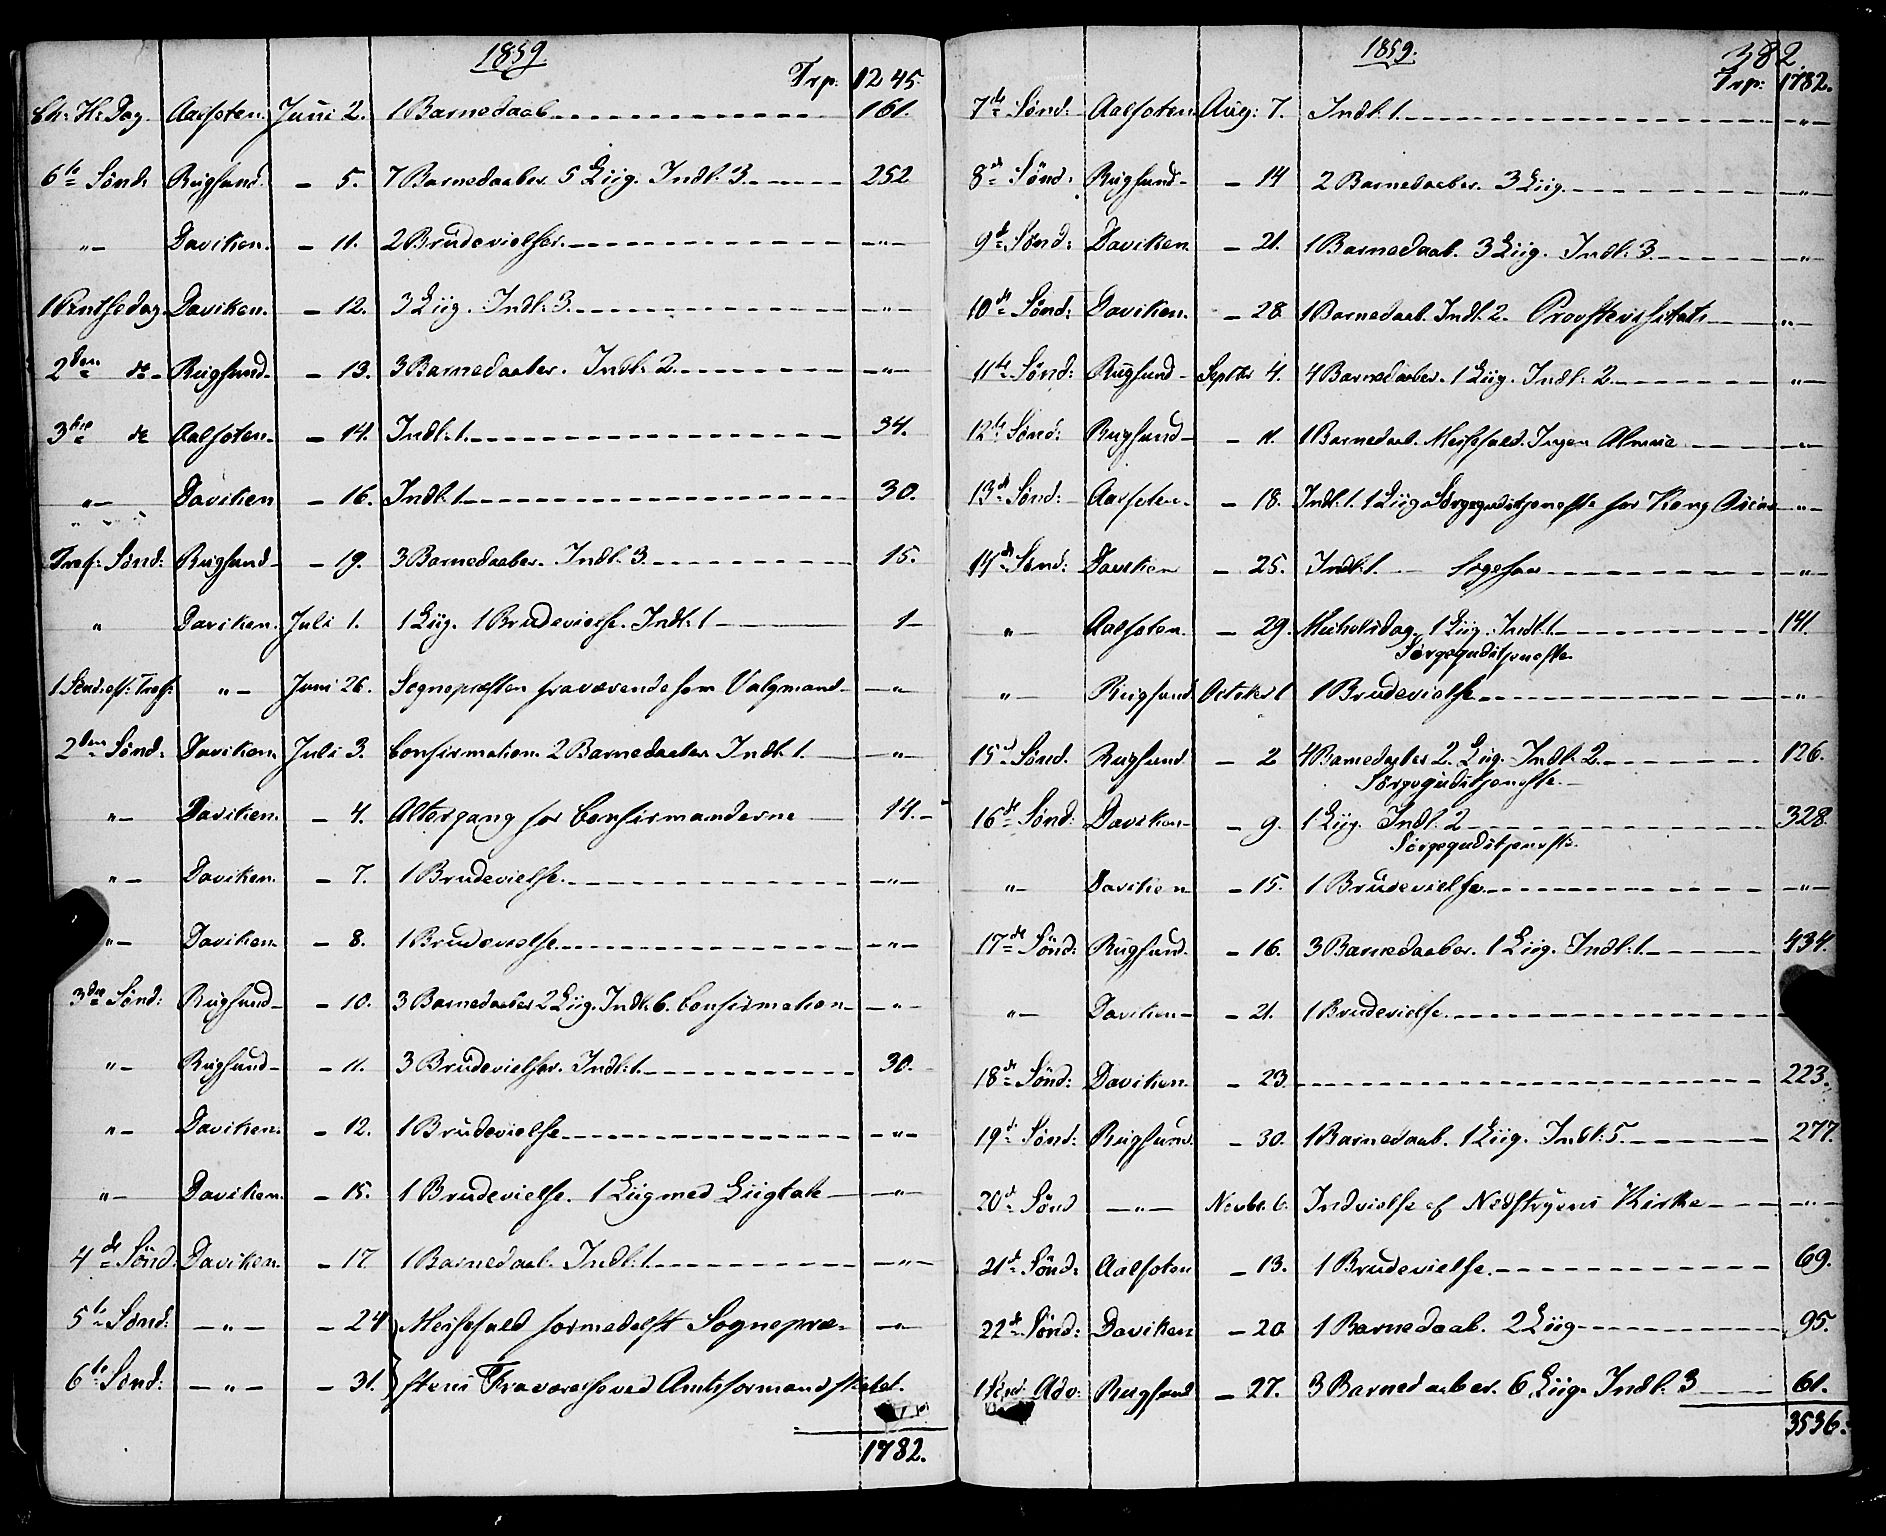 1859.
Trp: 1245.
Ch: H: Dag Aalfoten. Juni 2. 1 Barnedaab 161.
6te Sönd: Rugsund. – 5. 7 Barnedaaber. 5 Liig. Indl: 3. 252
„ – Daviken. – 11. 2 Brudevielser. – „ –
1 Pintsedag Daviken. – 12. 3 Liig. Indl: 3. – „ –
2den do – Rugsund – 13. 3 Barnedaaber. Indl: 2. – „ –
3die do Aalfoten – 14. Indl: 1. 34.
„ – Daviken – 16. Indl: 1. 30.
Tref: Sönd: Rugsund – 19. 3 Barnedaaber. Indl: 3. 15.
„ Daviken. Juli 1. 1 Liig. 1 Brudevielse. Indl: 1 1 –
1 Sönd: eft: Tref: „ – Juni 26. Sognepræsten fraværende som Valgmand – „
2den Sönd: Daviken Juli 3. Confirmation 2 Barnedaaber Indl: 1. – „
„ – Daviken. – 4. Altergang for Confirmanderne 14. –
„ – Daviken. – 7. 1 Brudevielse. – „ –
„ – Daviken. – 8. 1 Brudevielse – „ –
3die Sönd: Rugsund – – 10. 3 Barnedaaber 2 Liig. Indl: 6. Confirmation – „ –
„ – Rugsund – – 11. 3 Brudevielser. Indl: 1. 30.
„ – Daviken. – 12. 1 Brudevielse – „ –
„ – Daviken. – 15. 1 Brudevielse. 1 Liig med Liigtale – „ –
4de Sönd: Daviken. – 17 1 Barnedaab. Indl: 1. – „ –
5te Sönd: – „ – – 24 Messefald formedelst Sognepræ- – „
6te Sönd: – „ – – 31. stens Fraværelse ved Amtsformandskabet.
1782.
382.
1859.
Trp: 1782.
7de Sönd: Aalfoten Aug: 7. Indl: 1. – „ –
8de Sönd: Rugsund – – 14 2 Barnedaaber. 3 Liig. – „ –
9de Sönd: Daviken – 21. 1 Barnedaab. 3 Liig. Indl: 3. – „
10de Sönd: Daviken. – 28 1 Barnedaab. Indl: 2. Provstevisitats „ –
11te Sönd: Rugsund – Septbr 4. 4 Barnedaaber. 1 Liig. Indl: 2 „ –
12te Sönd: Rugsund – – 11. 1 Barnedaab. Messefald. Ingen Almue – „ –
13de Sönd: Aalfoten. – 18. Indl: 1. 1 Liig Sörgegudstjeneste for Kong Oscar – „ –
14de Sönd: Daviken – 25. Indl: 1. – „ –
„ – Aalfoten. – 29. Michelsdag. 1 Liig. Indl: 1. 141.
Sörgegudstjeneste.
„ – Rugsund October 1 1 Brudevielse – „ –
15de Sönd. Rugsund – 2 4 Barnedaaber 2. Liig. Indl: 2. 126.
Sörgegudstjeneste. –
16de Sönd: Daviken – – 9. 1 Liig. Indl: 2 328.
Sörgegudstjeneste.
„ – Daviken – 15. 1 Brudevielse. – „ –
17de Sönd: Rugsund. – 16. 3 Barnedaaber. 1 Liig. Indl: 1. 434.
„ – Daviken – – 21. 1 Brudevielse.
18de Sönd: Daviken – 23. 223.
19de Sönd: Rugsund. – 30. 1 Barnedaab. 1 Liig. Indl: 5. 277.
20de Sönd – „ – Novbr. 6. Indvielse af Nedstryens Kirke – „ –
21de Sönd: Aalfoten – 13. 1 Brudevielse. 69.
22de Sönd: Daviken – 20 1 Barnedaab. 2 Liig 95.
1 Sönd. Adv: Rugsund – 27. 3 Barnedaaber. 6 Liig. Indl: 3 61.
3536.